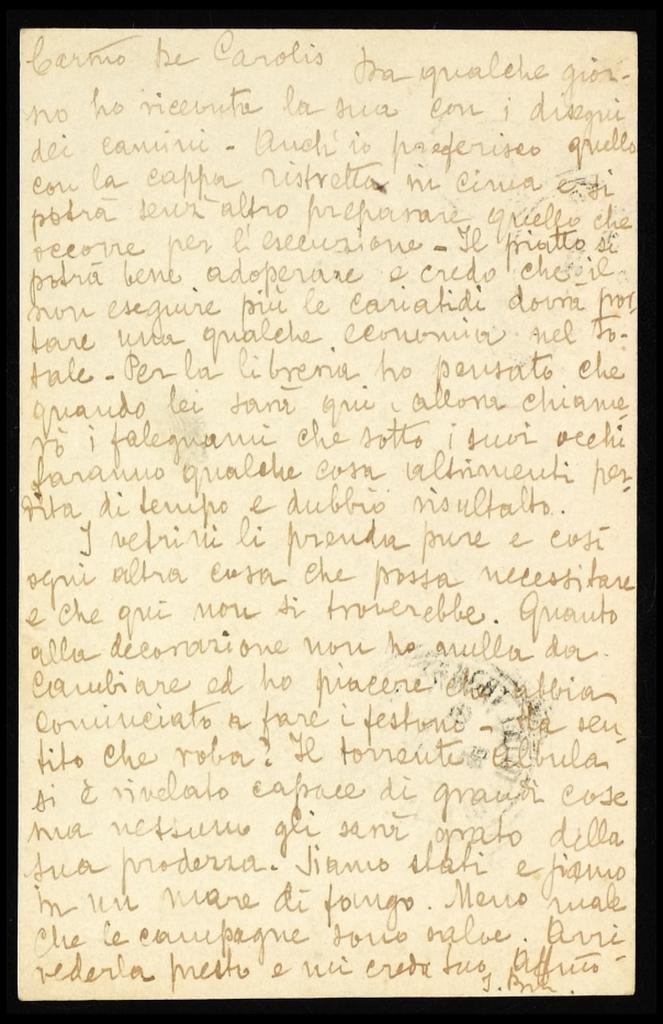 Carmo De Carolis Da qualche gior-
no ho ricevuta la sua con i disegni
dei camini - Anch'io preferisco quello
con la cappa ristretta in cima e si
potrà senz'altro preparare quello che
occorre per l'esecuzione - Il piatto si
potrà bene adoperare e credo che il
non eseguire più le cariatidi dovrà por-
tare una qualche economia nel to-
tale - Per la libreria ho pensato che
quando lei sarà qui, allora chiame-
rò i falegnami che sotto i suoi occhi
faranno qualche cosa altrimenti per-
dita di tempo e dubbio risultato.
I vetrini li prenda pure e così
ogni altra cosa che possa necessitare
e che qui non si troverebbe. Quanto
alla decorazione non ho nulla da
cambiare ed ho piacere che abbia
cominciato a fare i festoni - Ha sen-
tito che roba? Il torrente Albula
si è rivelato capace di grandi cose
ma nessuno gli sarà grato della
sua prodezza. Siamo stati e siamo
in un mare di fango. Meno male
che le campagne sono salve. Arri-
vederla presto e mi creda suo Affmo